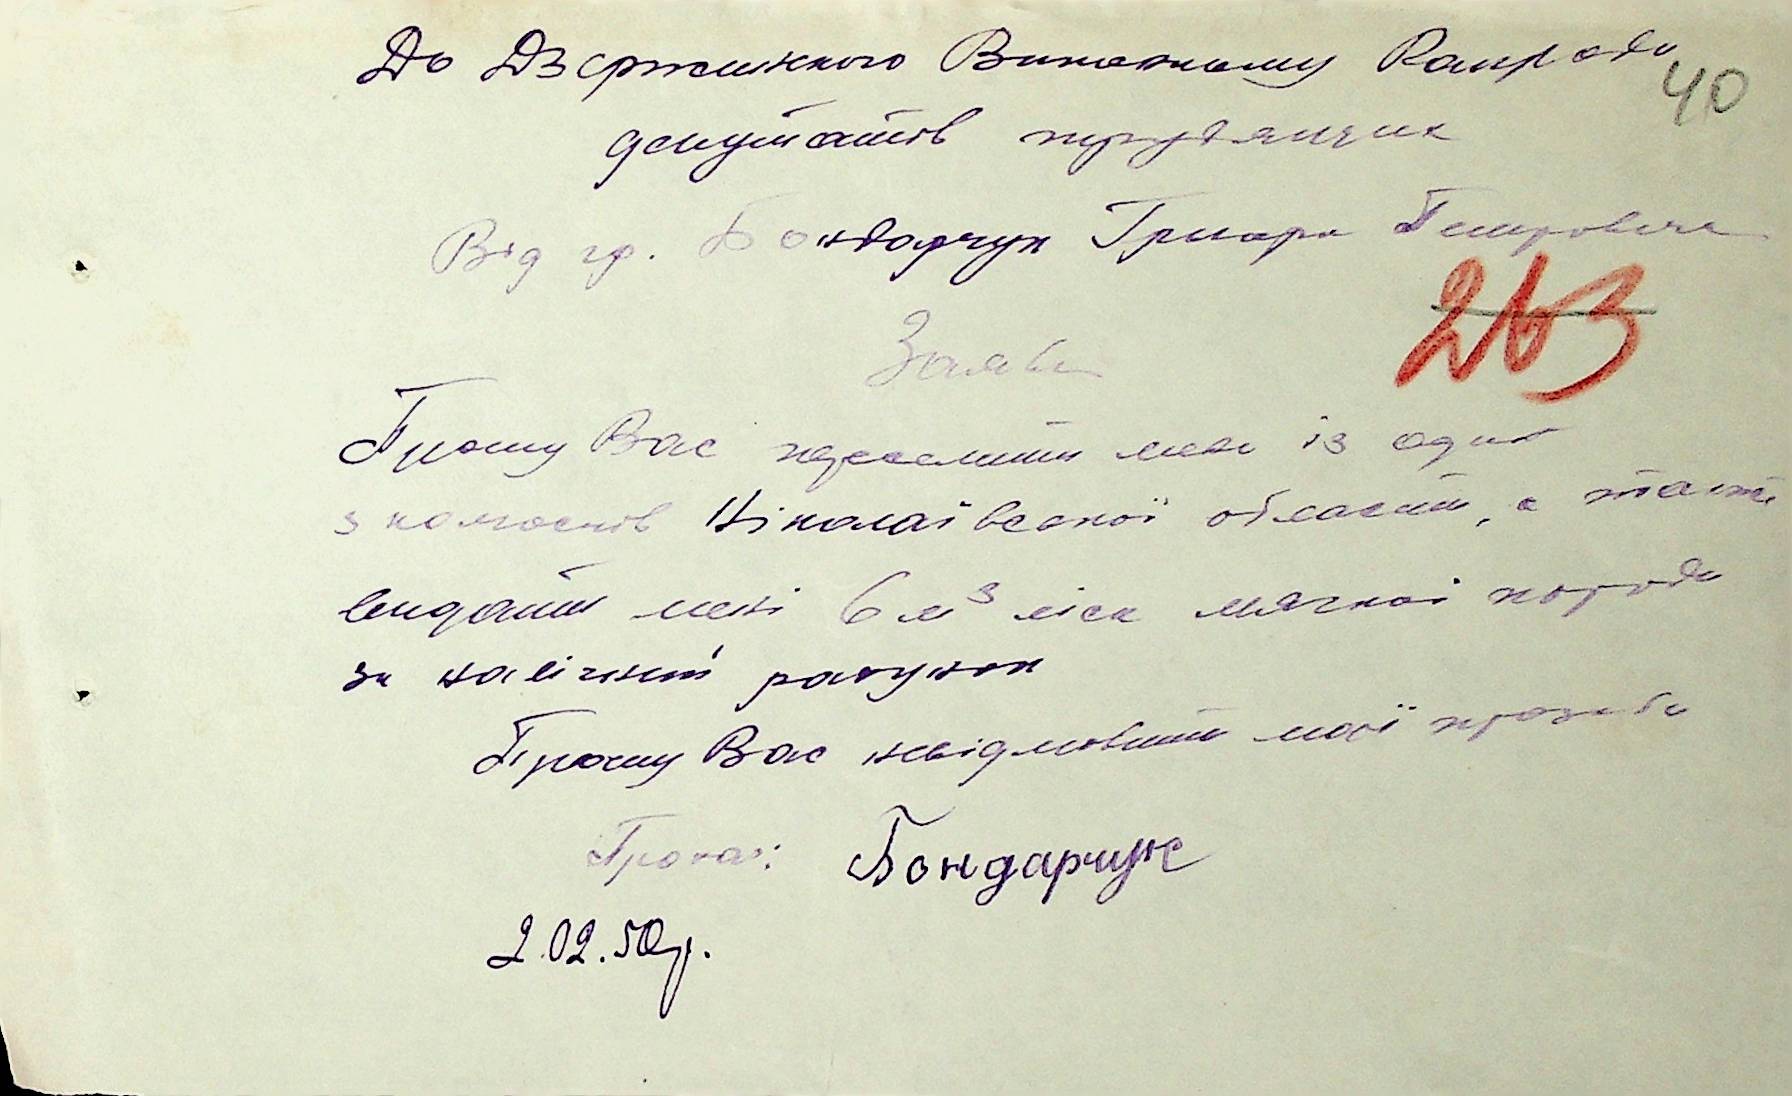 До Дзержинського Виконкому Райради
40
депутатів трудящих
Від гр. Бондарчук Григора Петровича
263
Заява
Прошу Вас переселити мене із один
з колгоспів Ніколаївської області, а також
видати мені 6 м³ ліса мягкої породи
за налічний рахунок
Прошу Вас невідмовити моєї прозьби
Прохач: Бондарчук
2.02.50р.